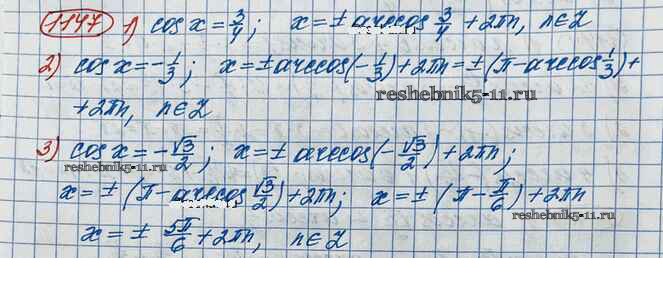 1147 1) cos x = 3/4; x = ± arccos 3/4 + 2πn, n∈Z
2) cos x = -1/3; x = ± arccos(-1/3) + 2πn = ± (π - arccos 1/3) +
reshebnik5-11.ru
+ 2πn, n∈Z
3) cos x = -√3/2; x = ± arccos(-√3/2) + 2πn;
x = ± (π - arccos √3/2) + 2πn; x = ± (π - π/6) + 2πn
reshebnik5-11.ru
x = ± 5π/6 + 2πn, n∈Z